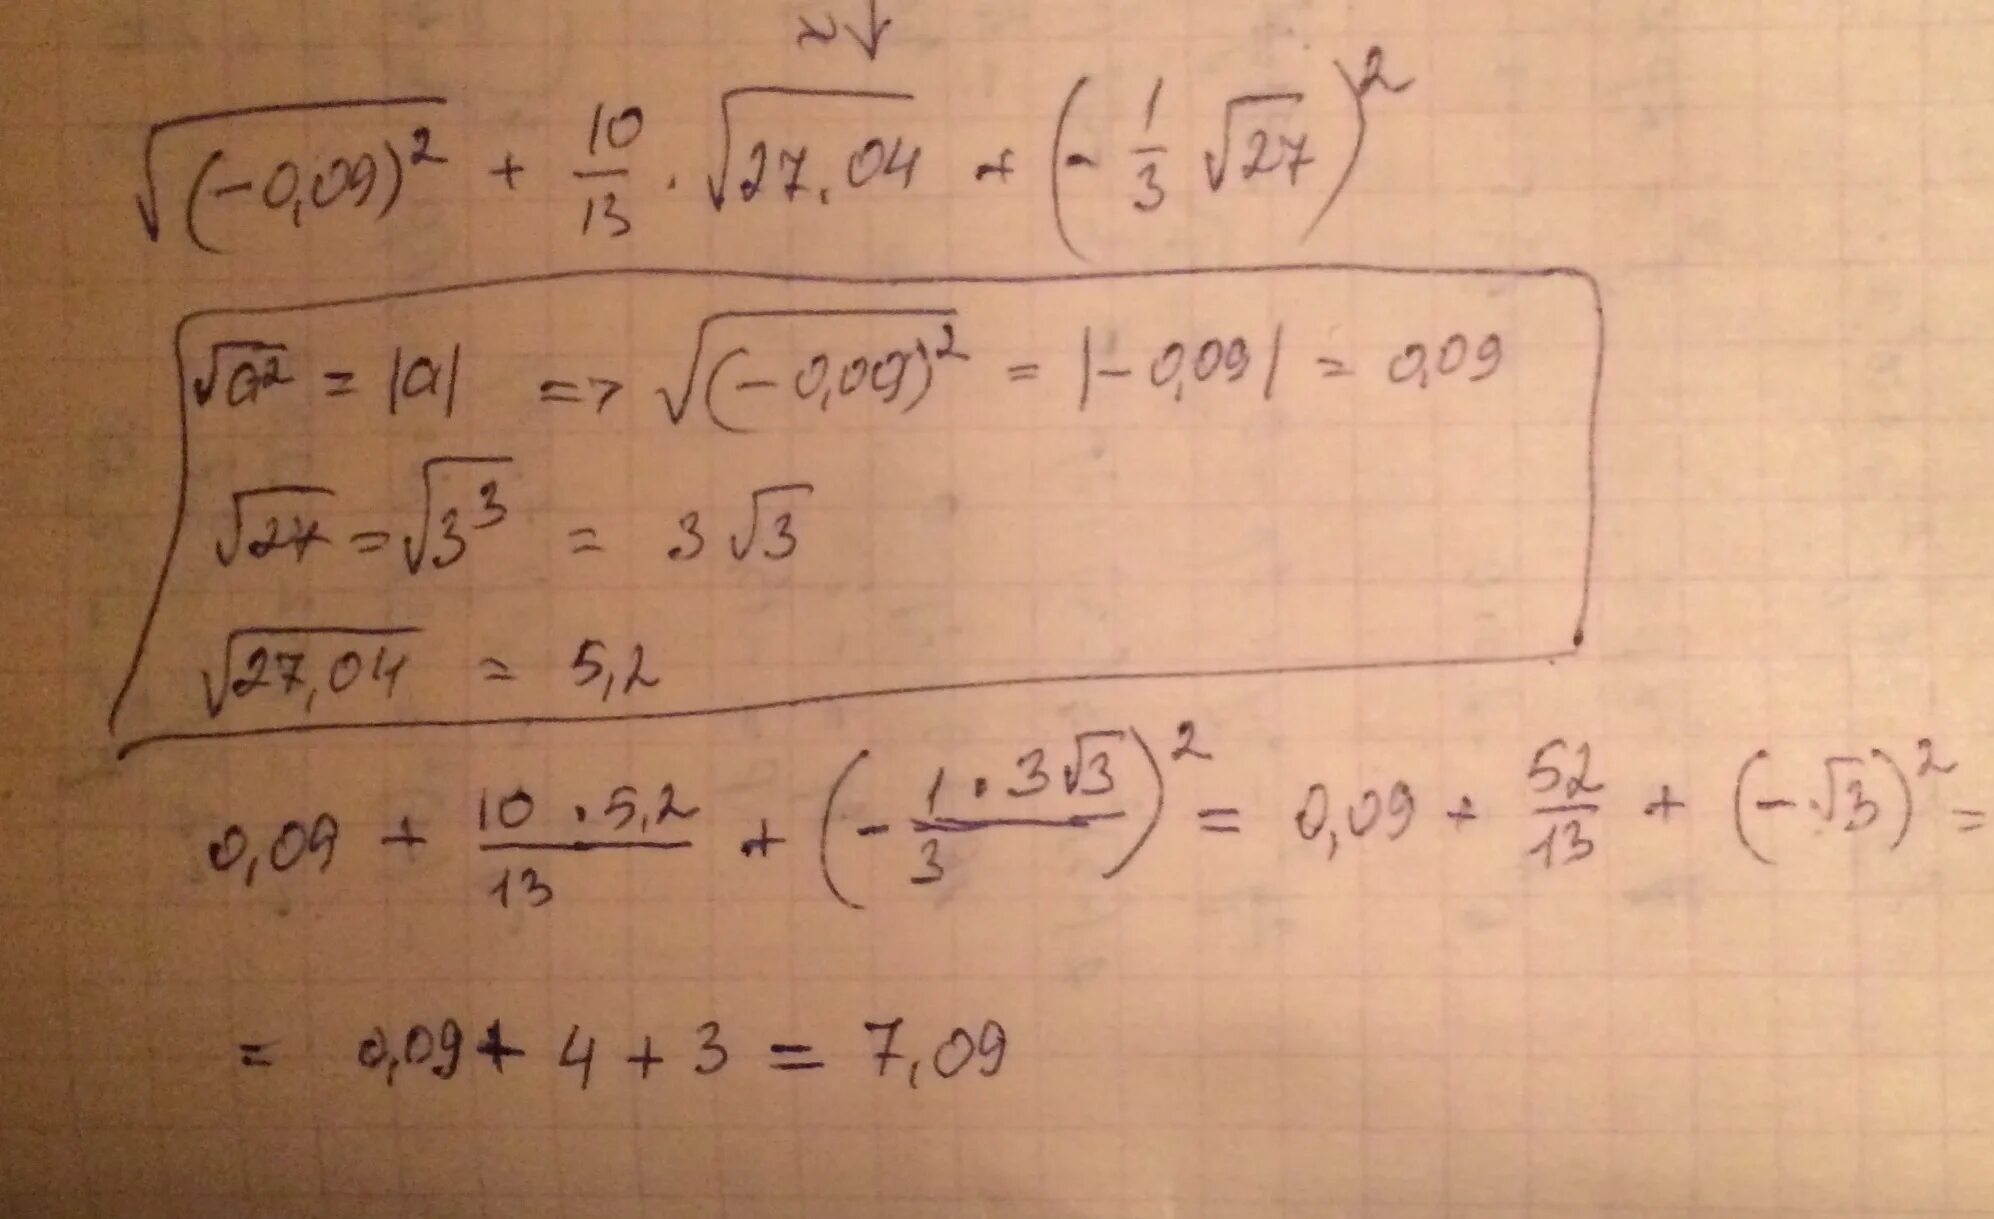 √(-0,09)² + 10/13 · √27,04 + (- 1/3 √27)²
√a² = |a| => √(-0,09)² = |-0,09| = 0,09
√27 = √3³ = 3√3
√27,04 = 5,2
0,09 + 10·5,2/13 + (- 1·3√3/3)² = 0,09 + 52/13 + (-√3)² =
= 0,09 + 4 + 3 = 7,09